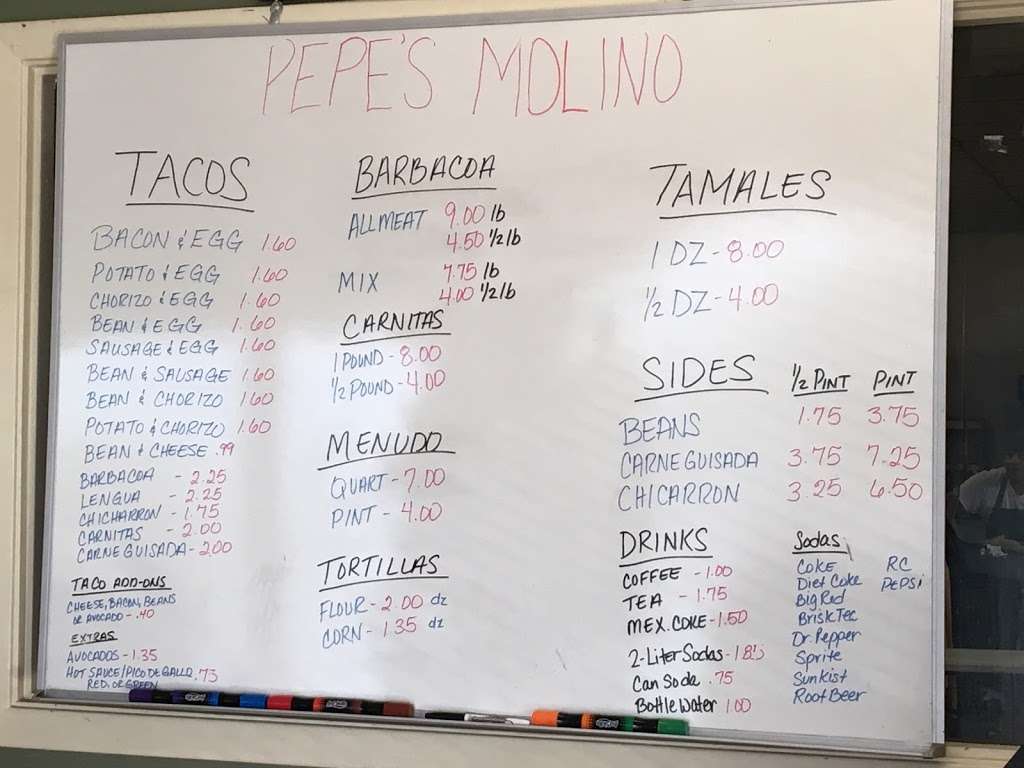 PEPE'S MOLINO
TACOS
BACON & EGG 1.60
POTATO & EGG 1.60
CHORIZO & EGG 1.60
BEAN & EGG 1.60
SAUSAGE & EGG 1.60
BEAN & SAUSAGE 1.60
BEAN & CHORIZO 1.60
POTATO & CHORIZO 1.60
BEAN & CHEESE .99
BARBACOA - 2.25
LENGUA - 2.25
CHICHARRON - 1.75
CARNITAS - 2.00
CARNE GUISADA - 2.00
TACO ADD-ONS
CHEESE, BACON, BEANS
OR AVOCADO - .40
EXTRAS
AVOCADOS - 1.35
HOT SAUCE/PICO DE GALLO .73
RED OR GREEN
BARBACOA
ALL MEAT 9.00 lb
4.50 1/2 lb
MIX 7.75 lb
4.00 1/2 lb
CARNITAS
1 POUND - 8.00
1/2 POUND - 4.00
MENUDO
QUART - 7.00
PINT - 4.00
TORTILLAS
FLOUR - 2.00 dz
CORN - 1.35 dz
TAMALES
1 DZ - 8.00
1/2 DZ - 4.00
SIDES 1/2 PINT PINT
BEANS 1.75 3.75
CARNE GUISADA 3.75 7.25
CHICARRON 3.25 6.50
DRINKS
COFFEE - 1.00
TEA - 1.75
MEX. COKE - 1.50
2-Liter Sodas
Can Soda .75
Bottle Water 1.00
Sodas
COKE
Diet Coke
Big Red
Brisk Tea
Dr. Pepper
Sprite
Sunkist
Root Beer
RC
PEPSi